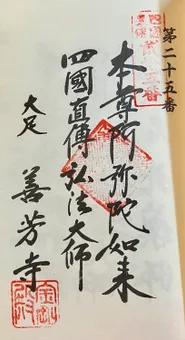 第二十五番
本尊阿弥陀如来
四國直傳弘法大師
大足 善芳寺